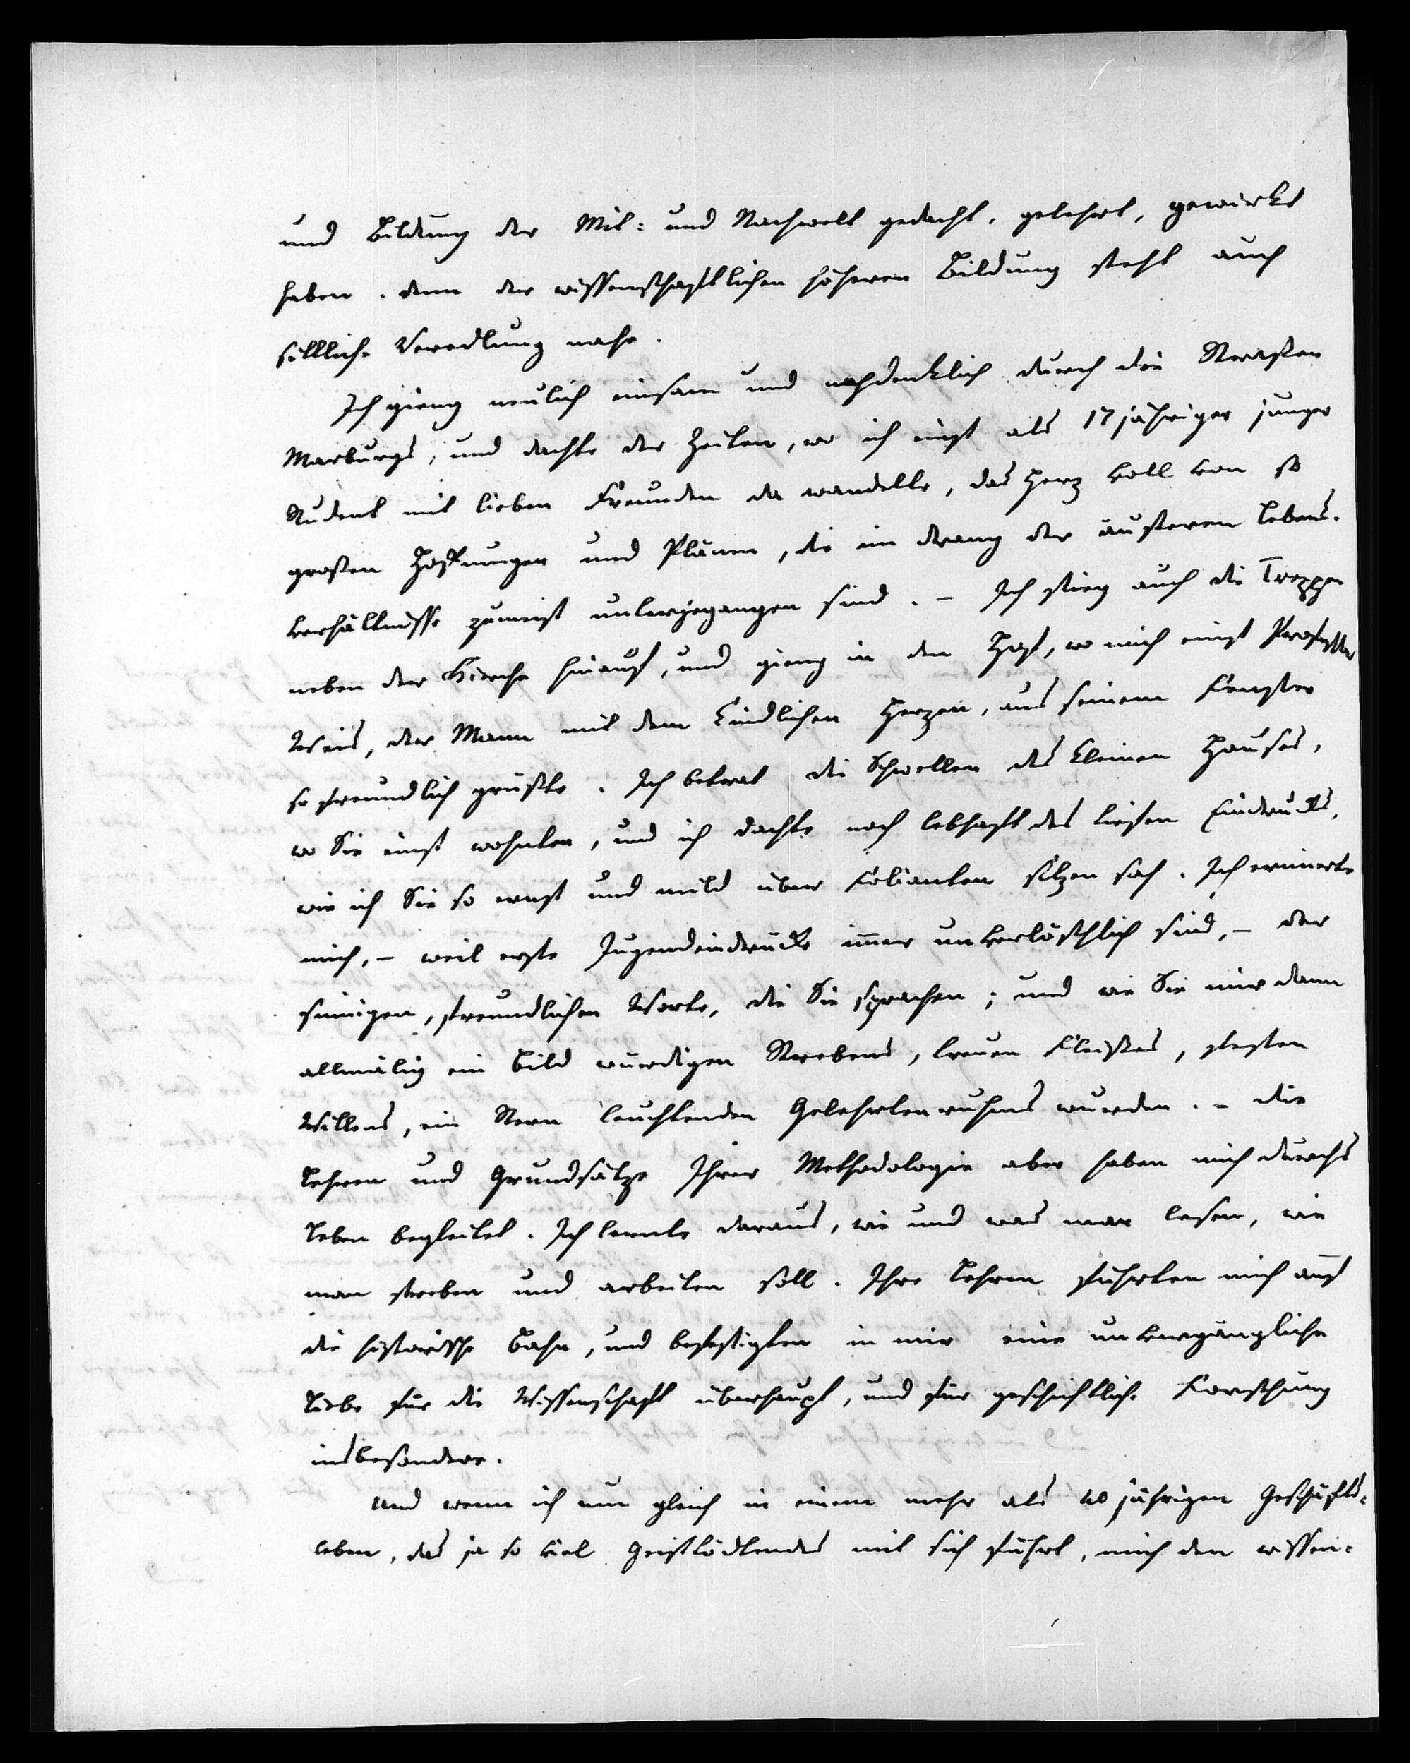 und Bildung der Mit= und Nachwelt gedacht, gelehrt, gewirkt
haben. denn der wissenschaftlichen höheren Bildung steht auch
sittliche Veredlung nahe.
Ich gieng neulich einsam und nachdenklich durch die Straßen
Marburgs, und dachte der Zeiten, wo ich einst als 17jähriger junger
Student mit lieben Freunden da wandelte, das Herz voll von so
großen Hoffnungen und Plänen, die im drang der äusseren Lebens-
verhältnisse zumeist untergegangen sind. – Ich stieg auch die Treppe
neben der Kirche hinauf, und gieng in den Hof, wo mich einst Professor
Weis, der Mann mit dem kindlichen Herzen, aus seinem Fenster
so freundlich grüßte. Ich betrat die Schwellen des kleinen Hauses,
wo Sie einst wohnten, und ich dachte noch lebhaft des tiefen Eindrucks,
wie ich Sie so ernst und mild über Folianten sitzen sah. Ich erinnerte
mich, – weil erste Jugendeindrücke immer unverlöschlich sind, – der
sinnigen, freundlichen Worte, die Sie sprachen; und wie Sie mir dann
allmälig ein Bild würdigen Strebens, treuen Fleißes, festen
Willens, ein Stern leuchtenden Gelehrtenruhms wurden. – die
Lehren und Grundsätze Ihrer Methodologie aber haben mich durchs
Leben begleitet. Ich lernte daraus, wie und was man lesen, wie
man streben und arbeiten soll. Ihre Lehren führten mich auf
die historische Bahn, und befestigten in mir eine unvergängliche
Liebe für die Wissenschaft überhaupt, und für geschichtliche Forschung
insbesondere.
Und wenn ich nun gleich in einem mehr als 20 jährigen Geschäfts-
leben, das ja so viel Geisttödtendes mit sich führt, mich den wissen-